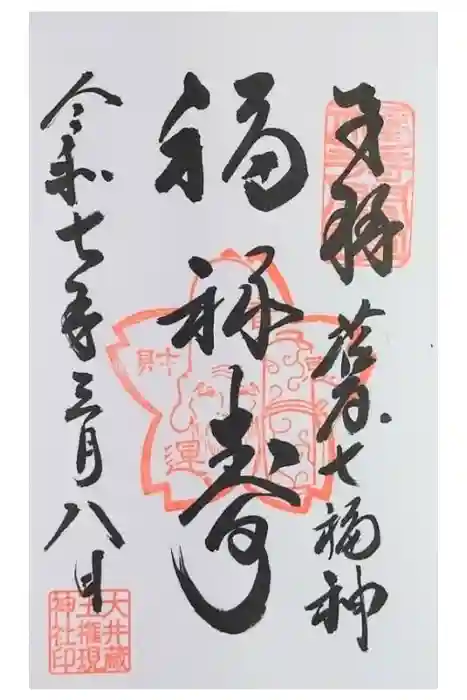 奉拝
荏原七福神
福禄寿
財運
令和七年三月八日
大井蔵
王権現
神社印